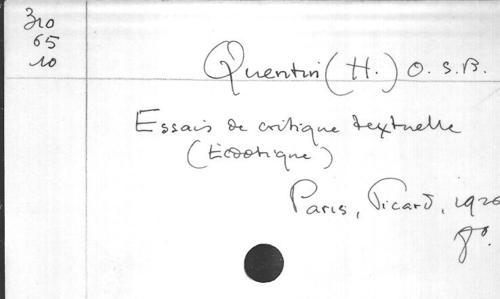 310
65
10
Quentin (H.) O.S.B.
Essais de critique textuelle
(Ecdotique)
Paris, Picard, 1926
8°.